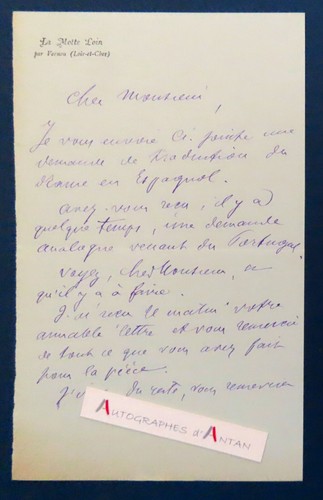 La Motte Loin
par Vernou (Loir-et-Cher)
Cher Monsieur,
Je vous envoie ci-jointe une
demande de traduction du
drame en Espagnol.
avez vous reçu, il y a
quelque temps, une demande
analogue venant du Portugal
voyez, cher Monsieur, ce
qu'il y a à faire.
J'ai reçu ce matin votre
aimable lettre et vous remercie
de tout ce que vous avez fait
pour la pièce.
du reste, vous remercier
AUTOGRAPHES d'ANTAN